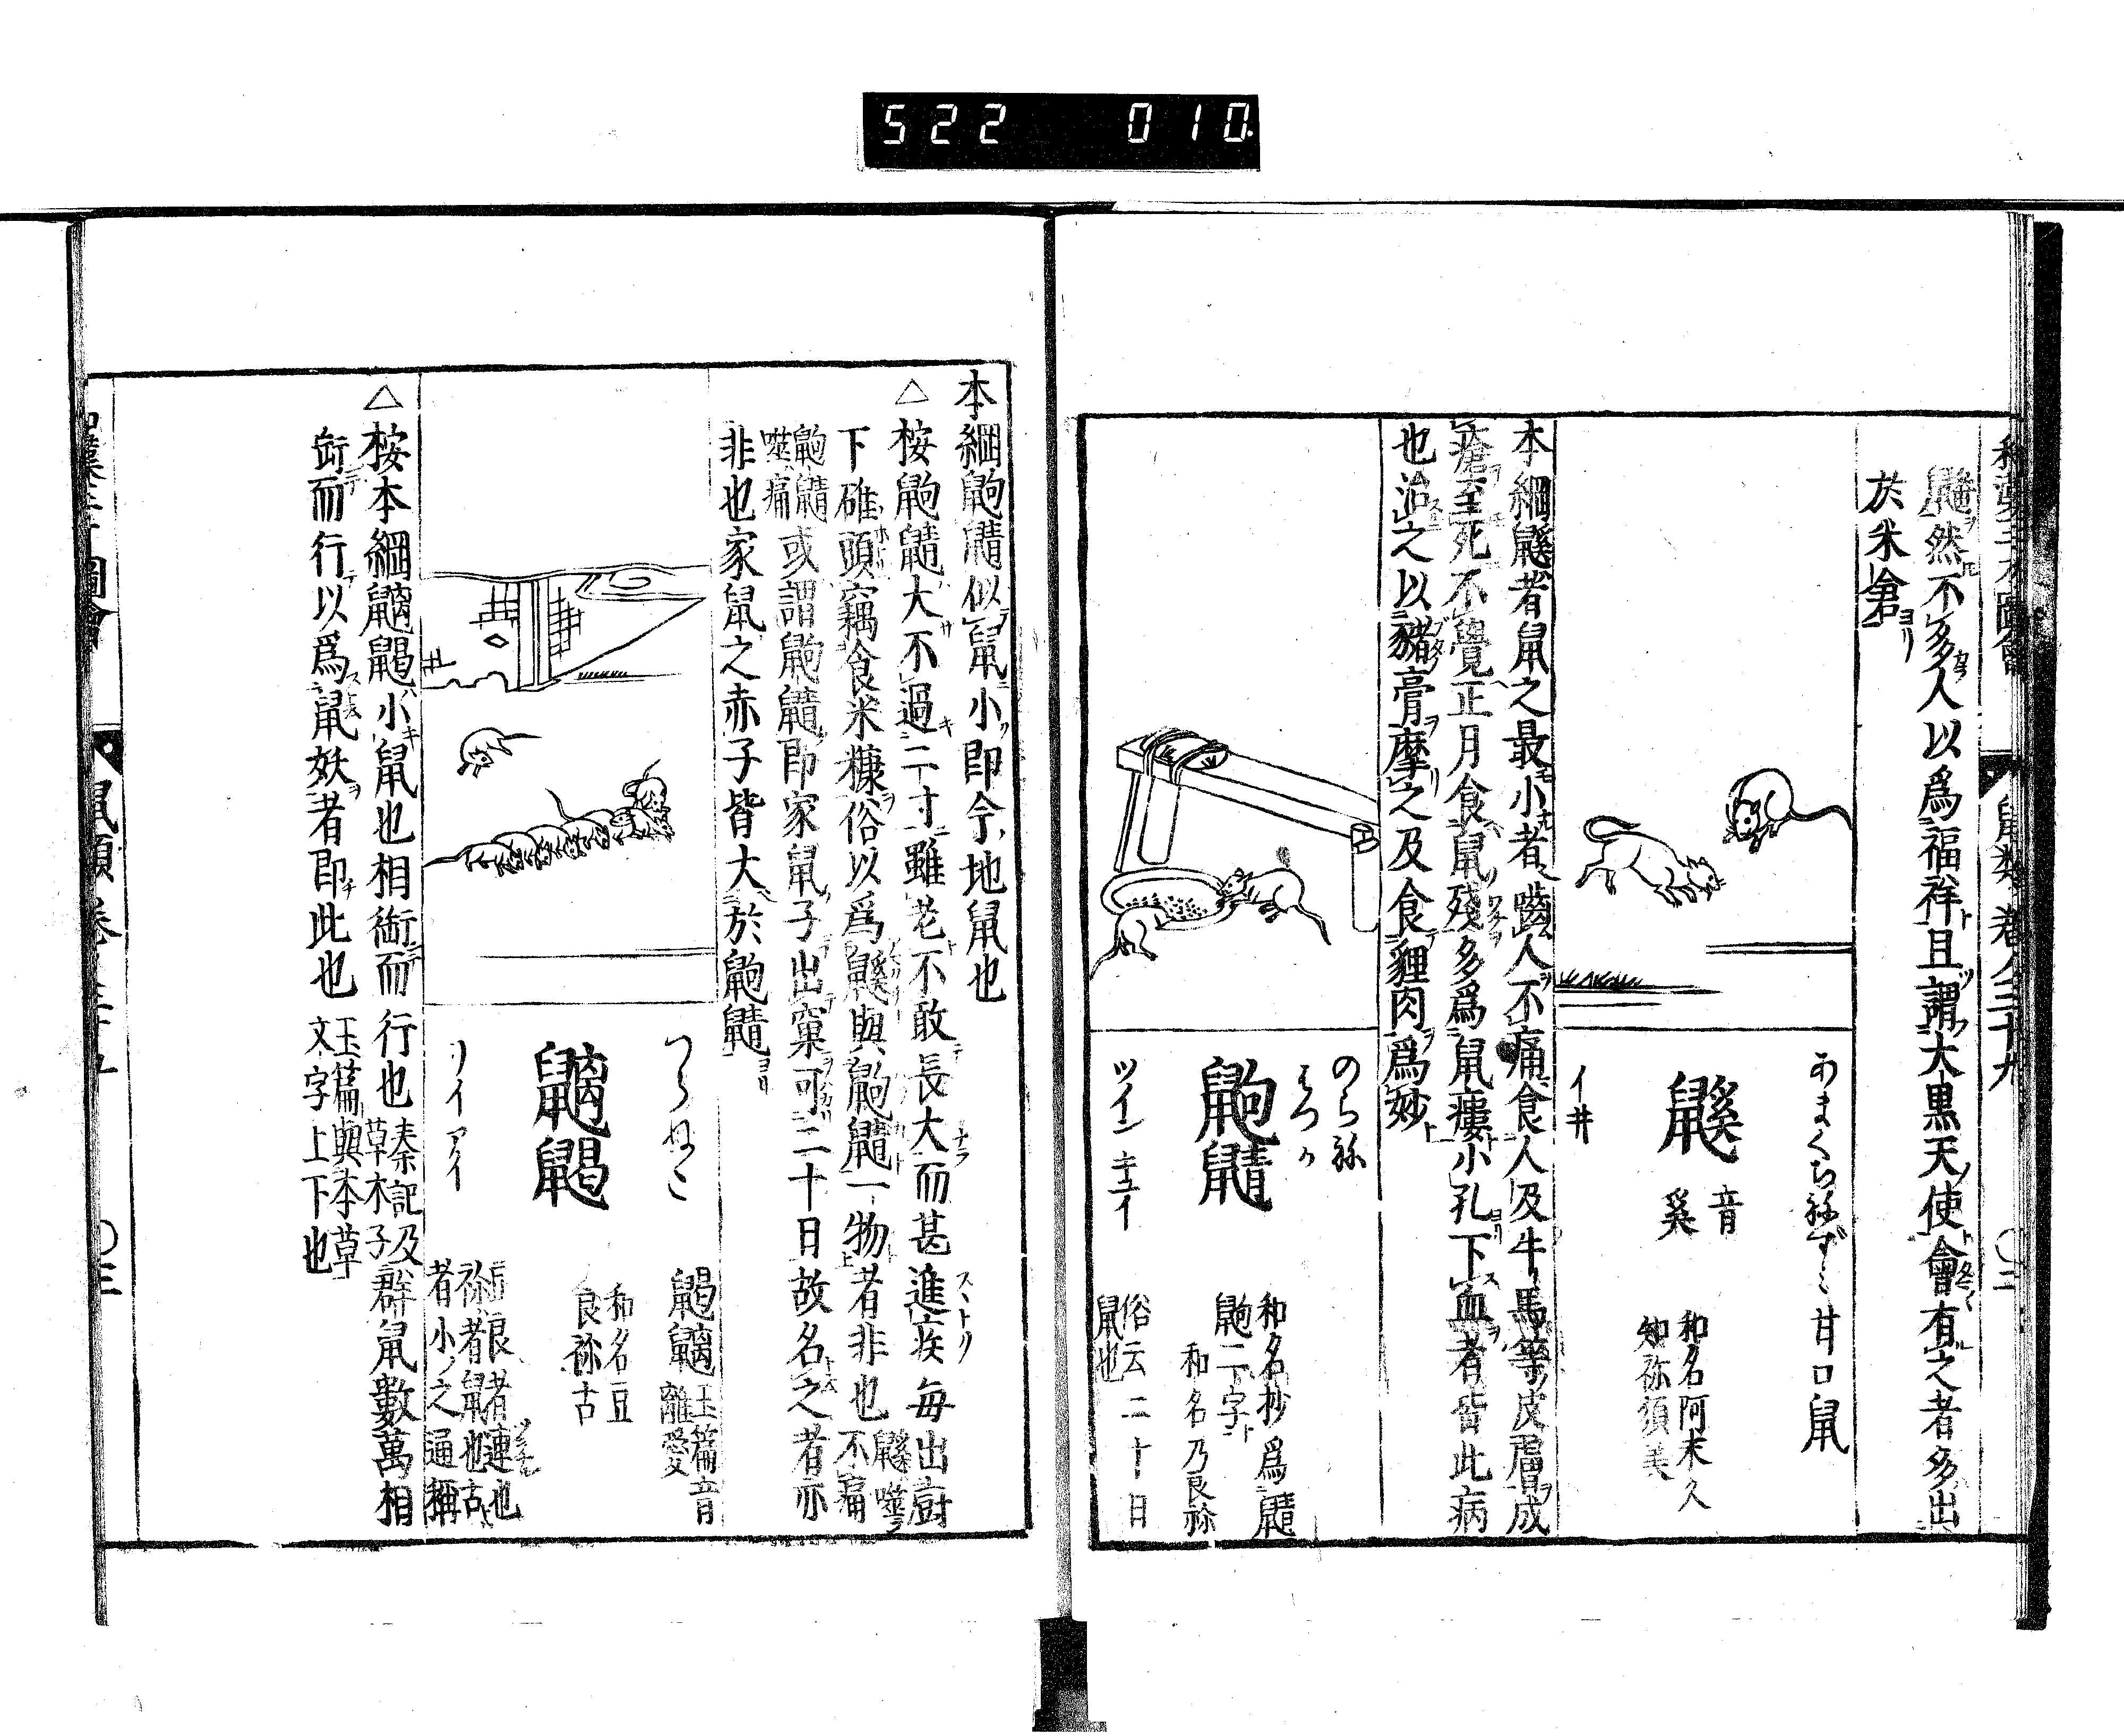 522 010
鼠然不多人以爲福祥且謂大黒天使會有之者多出
於米倉
あまくちねずミ 甘口鼠
鼷 音奚
和名阿末久
知祢須美
イ井
本綱鼷者鼠之最小者囓人不痛食人及牛馬等皮膚成
瘡至死不覺正月食鼠殘多爲鼠瘻小孔下血者皆此病
也治之以豬膏摩之及食貍肉爲妙
のらね
はつか
鼩鼱
和名抄爲鼱
鼩二字
和名乃良祢
俗云二十日
鼠也
ツイン
本綱鼩鼱似鼠小即今地鼠也
△按鼩鼱大不過二寸雖老不敢長大而甚進疾毎出厨
下碓頭竊食米糠俗以爲鼷與鼩鼱一物者非也鼷噬不痛
鼩鼱噬痛或謂鼩鼱即家鼠子出窠可二十日故名之者亦
非也家鼠之赤子皆大於鼩鼱
つらねこ
䶉鼠曷
玉篇音
離愛
和名豆
良祢古
豆良者連也
祢者鼠也古
者小之通稱
リイ アイ
△按本綱小鼠也相銜而行也秦記及草木子群鼠數萬相
銜而行以爲鼠妖者即此也玉篇與本草文字上下也
和漢三才圖會 鼠類 卷三十九 〇三